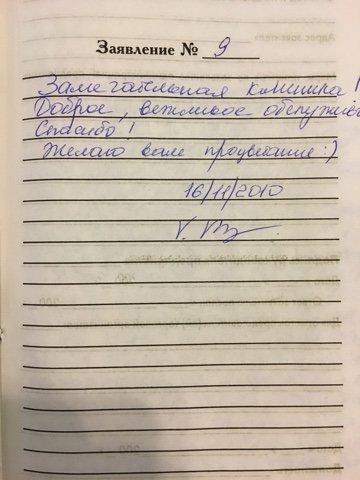 Заявление № 9
Замечательная клиника!
Доброе, вежливое обслужив
Спасибо!
Желаю вам процветания :)
16/11/2010